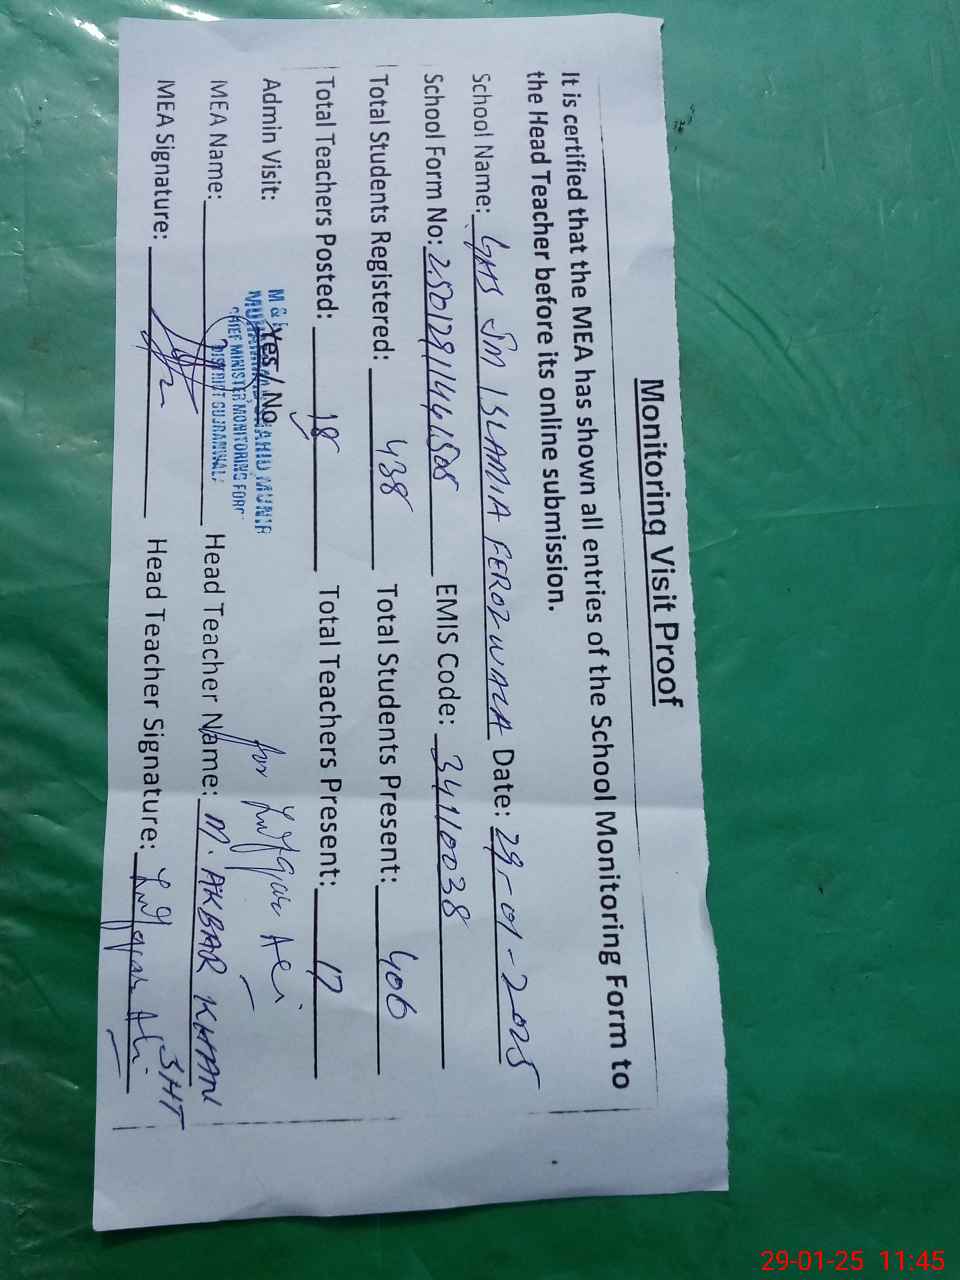 Monitoring Visit Proof
It is certified that the MEA has shown all entries of the School Monitoring Form to
the Head Teacher before its online submission.
School Name: GHS JM ISLAMIA FEROZWALA Date: 29-01-2025
School Form No: EMIS Code: 34110038
Total Students Registered: 438 Total Students Present: 406
Total Teachers Posted: 18 Total Teachers Present: 17
Admin Visit: Yes / No for Zulfqar Ali
MUHAMMAD SHAHID MUNIR
CHIEF MINISTER MONITORING FORC
DISTRICT GUJRANWALA
MEA Name: Head Teacher Name: M. AKBAR KHAN
MEA Signature: Head Teacher Signature: Zulfqar Ali SHT
29-01-25 11:45